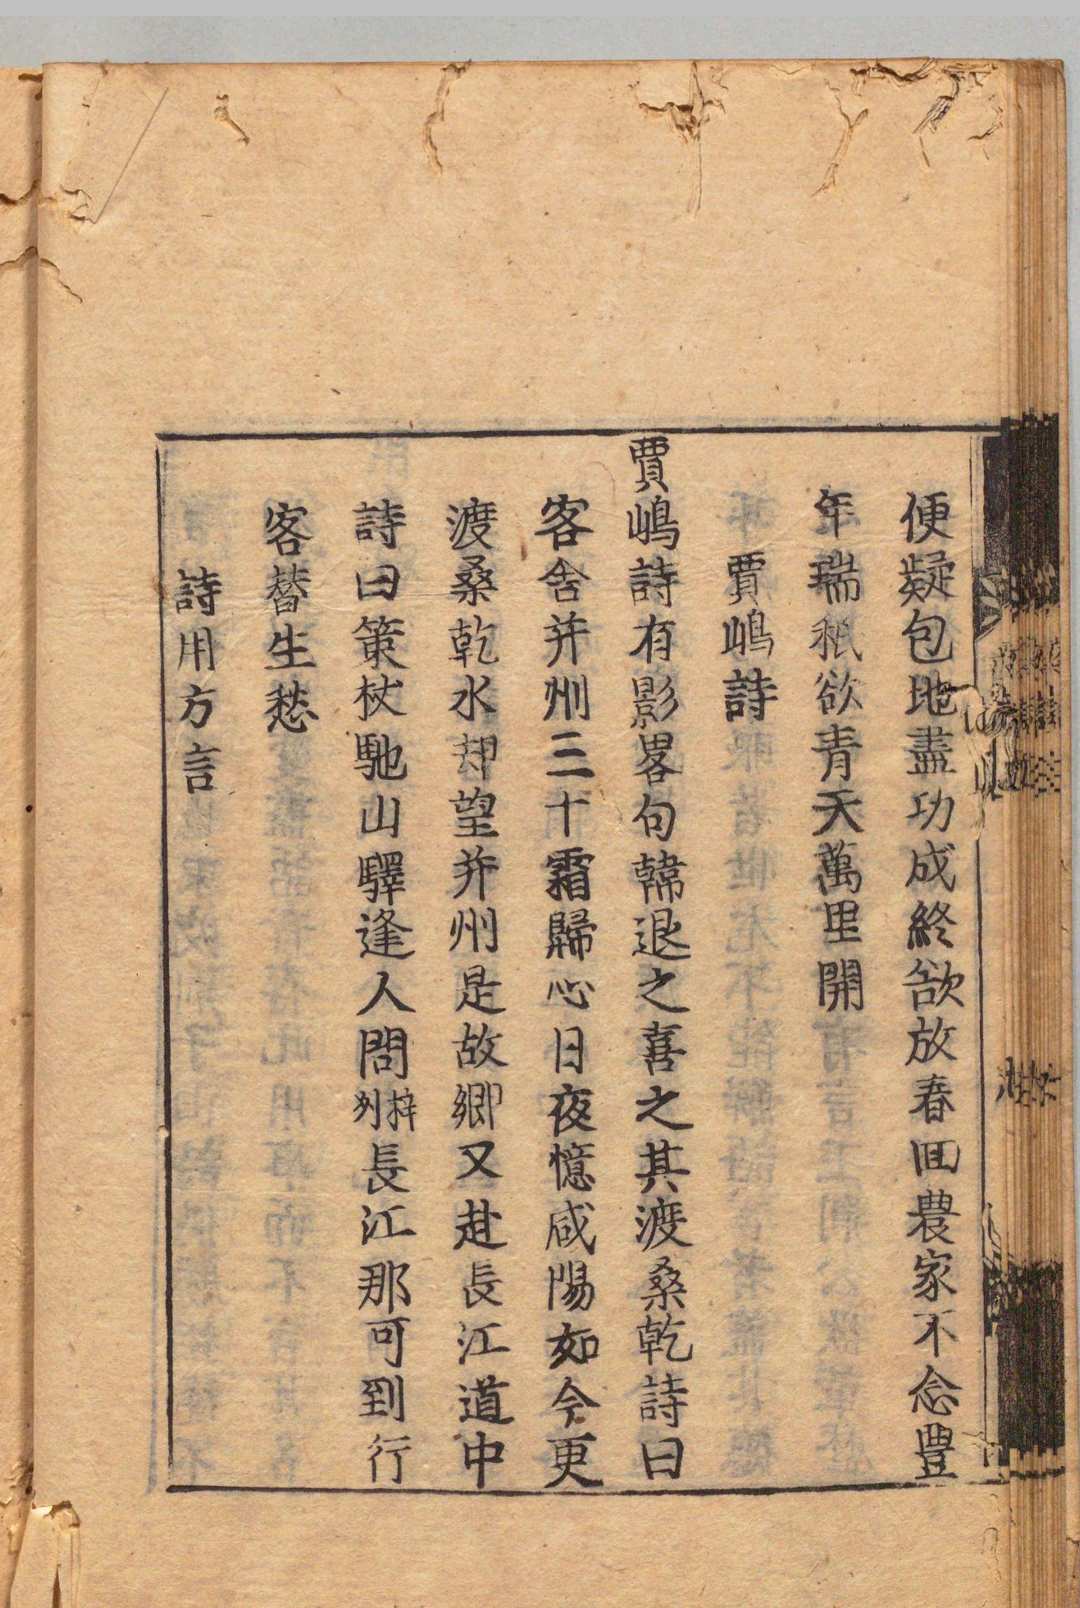 便疑包地盡功成終欲放春回農家不念豊
年瑞秖欲青天萬里開
賈嶋詩
賈嶋詩有影畧句韓退之喜之其渡桑乾詩曰
客舍并州三十霜歸心日夜憶咸陽如今更
渡桑乾水却望并州是故郷又赴長江道中
詩曰策杖馳山驛逢人問梓州長江那可到行
客替生愁
詩用方言